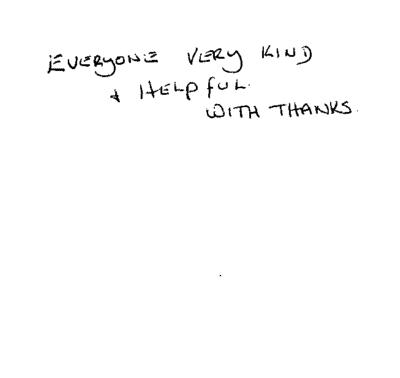 EVERYONE VERY KIND
& HELPFUL.
WITH THANKS.